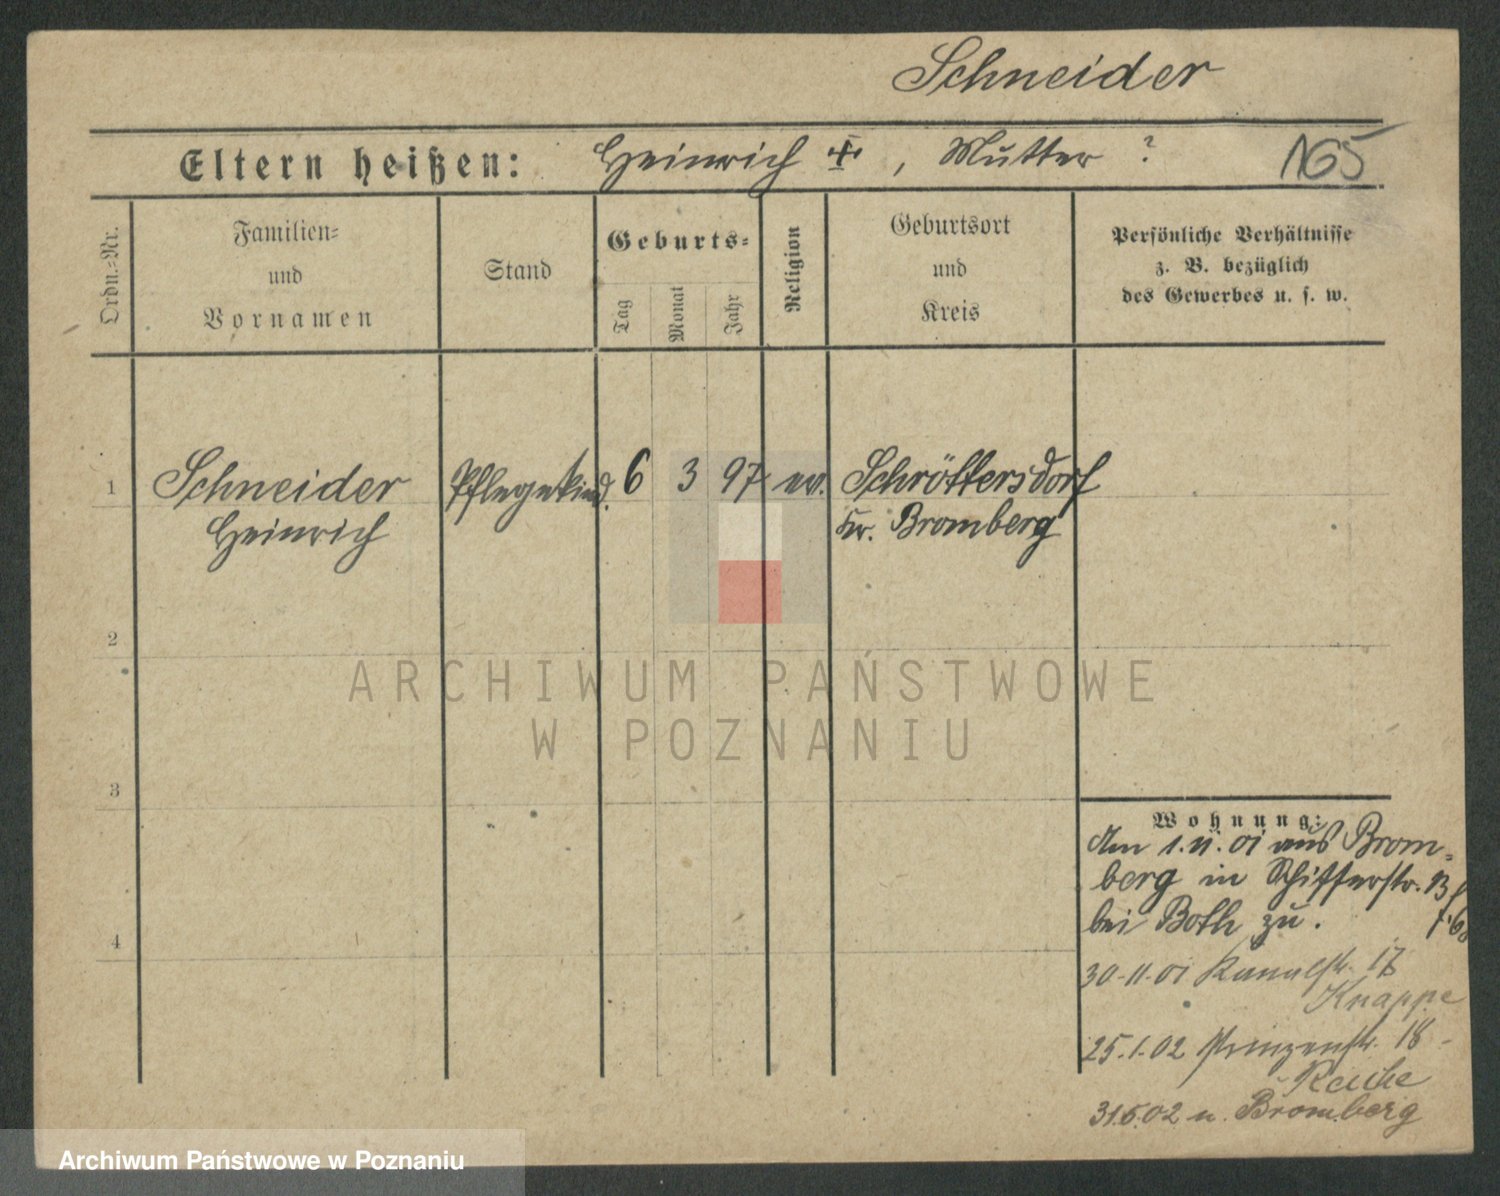 Schneider
Eltern heißen: Heinrich ✝, Mutter ? 165
Ordn.=Nr.
Familien=
und
Vornamen
Stand
Geburts=
Tag
Monat
Jahr
Religion
Geburtsort
und
Kreis
Persönliche Verhältnisse
z. B. bezüglich
des Gewerbes u. s. w.
1 Schneider Pflegekind. 6 3 97 ev. Schröttersdorf
Heinrich Kr. Bromberg
2
3
4
Wohnung:
Am 1.11.01 aus Brom=
berg in Schifferstr. 13
bei Both zu.
30-11-01 Kanalstr. 17
Knappe
25.1.02 Prinzenstr. 18 -
31.5.02 n. Bromberg
ARCHIWUM PAŃSTWOWE
W POZNANIU
Archiwum Państwowe w Poznaniu